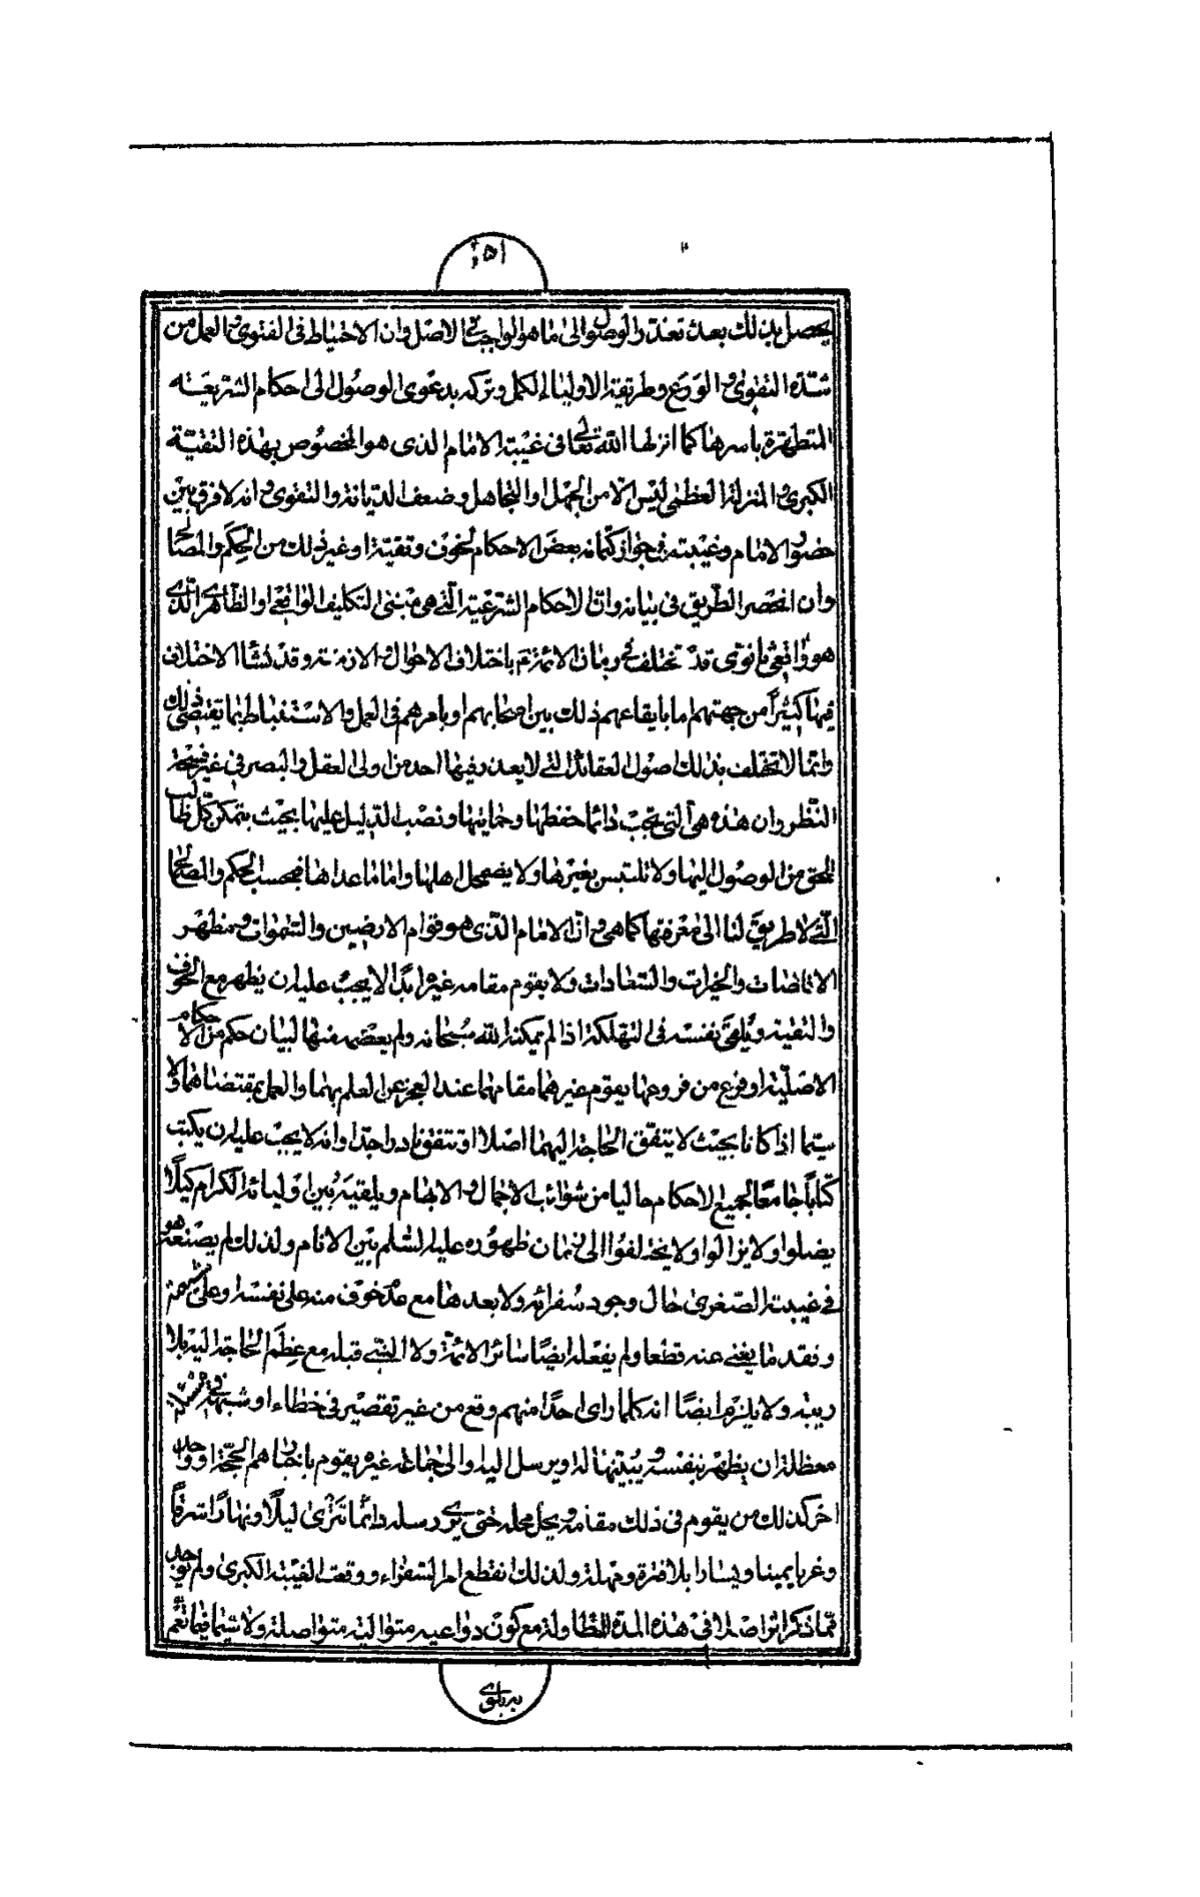 ١٥١
يحصل بذلك بعد تعذر الوصول الى ما هو الواجب في الاصل وان الاحتياط في الفتوى والعمل من
شدة التقوى والورع وطريقة الاولياء الكمل وتركه بدعوى الوصول الى احكام الشريعة
المتطهرة باسرها كما انزلها الله تعالى في غيبة الامام الذي هو المخصوص بهذه التقية
الكبرى والمنزلة العظمى ليس الا من الجهل او التجاهل وضعف الديانة والتقوى وانه لا فرق بين
حضور الامام وغيبته في جواز كتمانه بعض الاحكام لخوف وتقية او غير ذلك من الحكم والمصالح
وان انحصر الطريق في بيانه وان الاحكام الشرعية التي هي مبنى التكليف الواقعي او الظاهري الذي
هو واقعي ثانوي قد تختلف في زمان الائمة باختلاف الاحوال والازمنة وقد نشأ الاختلاف
فيها كثيرا من جهتهم اما بايقاعهم ذلك بين اصحابهم او بامرهم في العمل والاستنباط بما يقتضي ذلك
وانما لا تختلف بذلك اصول العقائد التي لا يعذر فيها احد من اولي العقل والبصر في غير فسحة
النظر وان هذه هي التي تجب دائما حفظها وحمايتها ونصب الدليل عليها بحيث يتمكن كل طالب
للحق من الوصول اليها ولا تلتبس بغيرها ولا يضمحل اهلها واما ما عداها فبحسب الحكم والمصالح
التي لا طريق لنا الى معرفتها كما هي وان الامام الذي هو قوام الارضين والسموات ومظهر
الافاضات والخيرات والسعادات ولا يقوم مقامه غيره ابدا لا يجب عليه ان يظهر مع الخوف
والتقية ويلقي بنفسه في التهلكة اذا لم يمكنه الله سبحانه ولم يعصمه منها لبيان حكم من الاحكام
الاصلية او فرع من فروعها يقوم غيرهما مقامهما عند العجز عن العلم بهما والعمل بمقتضاهما ولا
سيما اذا كانا بحيث لا يتفق الحاجة اليهما اصلا او تتفق نادرا جدا وانه لا يجب عليه ان يكتب
كتابا جامعا لجميع الاحكام خاليا من شوائب الاجمال والابهام ويلقيه بين اوليائه الكرام كيلا
يضلوا ولا يزالوا ولا يختلفوا الى زمان ظهوره عليه السلم بين الانام ولذلك لم يصنعه هو
في غيبته الصغرى حال وجود سفرائه ولا بعدها مع عدم خوف منه على نفسه وعلى شيعته
وفقد ما يغني عنه قطعا ولم يفعله ايضا سائر الائمة ولا النبي قبله مع عظم الحاجة اليه بلا
ريبة ولا يلزم ايضا انه كلما رأى احدا منهم وقع من غير تقصير في خطاء او شبهة في
معظلة ان يظهر بنفسه ويبينها له او يرسل اليه او الى جماعة غيره يقوم باخبارهم الحجة او واحد
اخر كذلك من يقوم في ذلك مقامه ويحل محله حتى يرى رسله دائما تترى ليلا ونهارا شرقا
وغربا يمينا ويسارا بلا فترة ومهلة ولذلك انقطع امر السفراء ووقعت الغيبة الكبرى ولم يوجد
مما ذكر اثر اصلا في هذه المدة المتطاولة مع كون دواعيه متوالية متواصلة ولا سيما فيما تعم
به بلوى